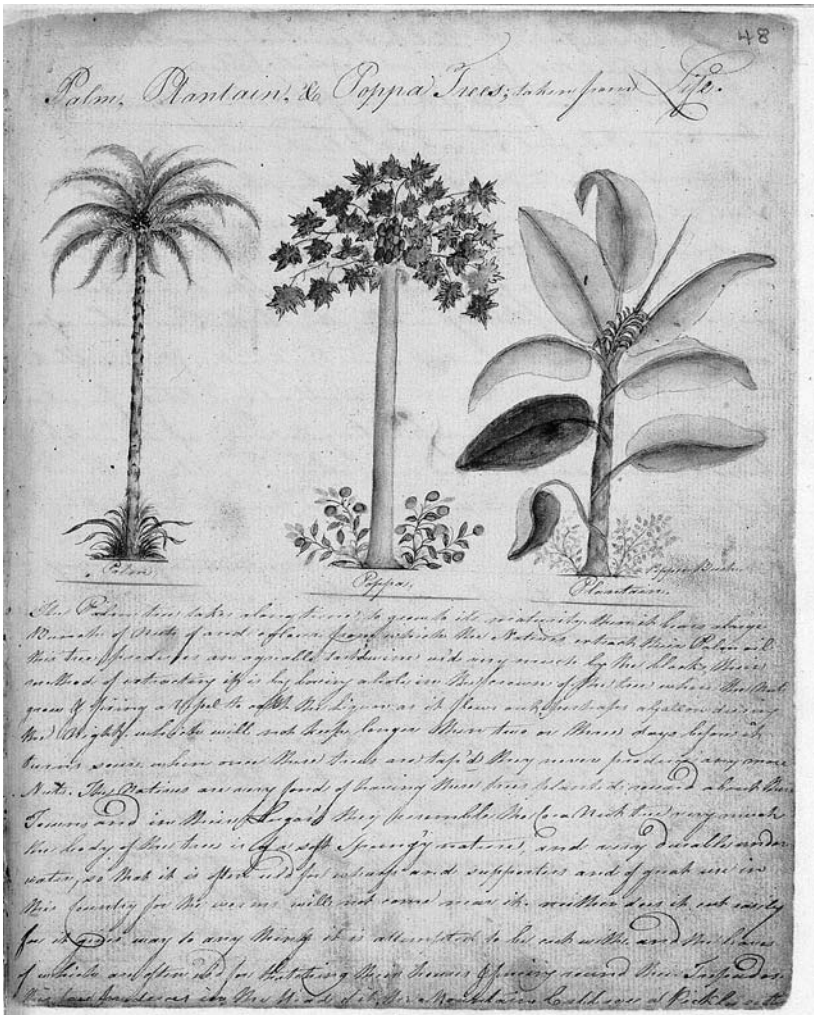 48
Palm, Plantain, & Poppa Trees; taken from Life.
Palm
Poppa,
Plantain.
The Palm tree takes a long time to grow to its maturity, then it bears a large
Bunch of Nuts of and colour from which the Natives extract their Palm oil
this tree produces an agreeable wine us'd very much by the blacks, their
method of extracting it is by boring a hole in the crown of the tree where the Nuts
grow & fixing a to catch the Liquor as it flows out perhaps a gallon during
the Night, which will not keep longer than two or three days before it
turns sour, when once these trees are tap'd they never produce any more
Nuts. The Natives are very fond of having these trees planted round about their
Towns and in their they resemble the Coca Nut tree very much
the body of the trees is of a soft Spungy nature, and very durable under
water, so that it is often us'd for wharfs and supporters and of great use in
this Country for the worms will not come near it. neither does it cut easily
for it gives way to any thing it is attempted to be cut with, and the leaves
of which are often us'd for thatching their houses & round their
in the Head of it, the Mountain